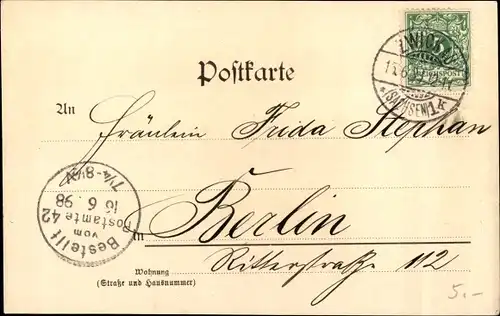 ZWICKAU
(SACHSEN) 1 k
Postkarte
An
Fräulein Frida Stephan
Bestellt
vom
Postamte 42
16 6. 98
7¼-8¼N.
in Berlin
Ritterstraße 112
Wohnung
(Straße und Hausnummer)
5.-